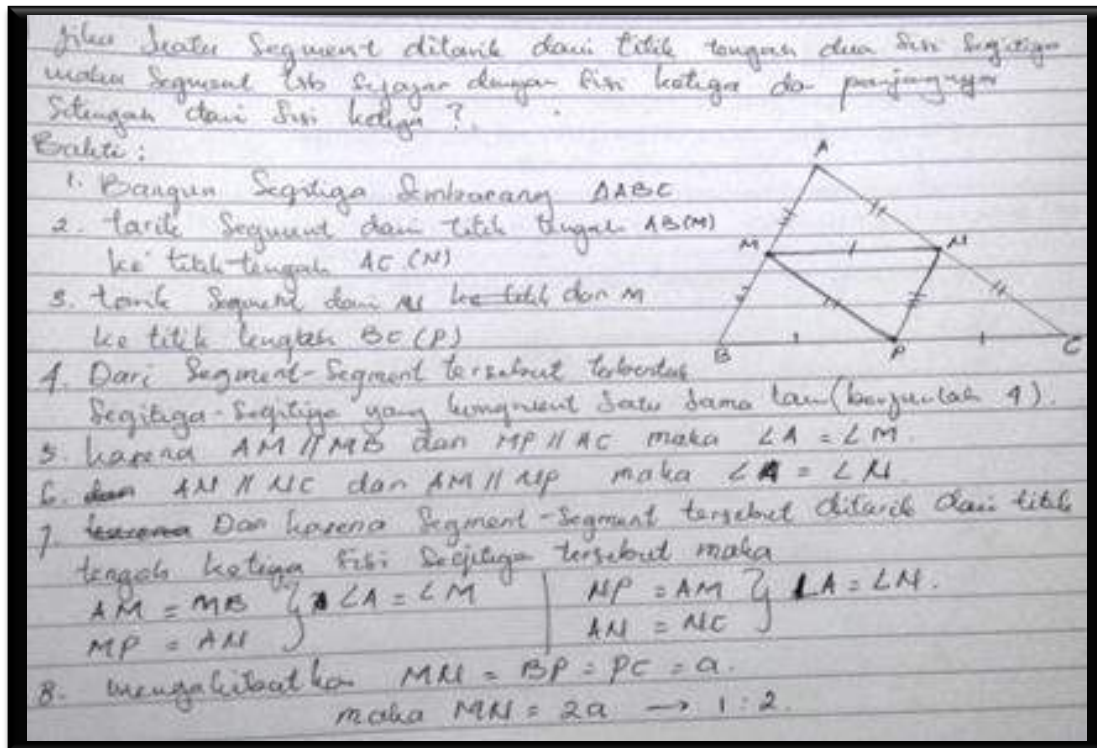 Jika Suatu Segment ditarik dari titik tengah dua sisi Segitiga
maka Segment tsb Sejajar dengan sisi ketiga dan panjangnya
Setengah dari Sisi ketiga ?.
Bukti :
1. Bangun Segitiga Sembarang ΔABC
2. tarik Segment dari titik tengah AB(M)
ke titik tengah AC (N)
3. tarik Segment dari N ke titik dan M
ke titik tengah BC (P)
4. Dari Segment-Segment tersebut terbentuk
Segitiga-Segitiga yang kongruent Satu Sama lain (berjumlah 4).
5. karena AM // MB dan MP // AC maka ∠A = ∠M.
6. AN // NC dan AM // NP maka ∠A = ∠N
7. Dan karena Segment-Segment tersebut ditarik dari titik
tengah ketiga sisi Segitiga tersebut maka
AM = MB } ∠A = ∠M | NP = AM } ∠A = ∠N.
MP = AN | AN = NC
8. mengakibatkan MN = BP = PC = a.
maka MN = 2a → 1 : 2.
A
M N
B P C